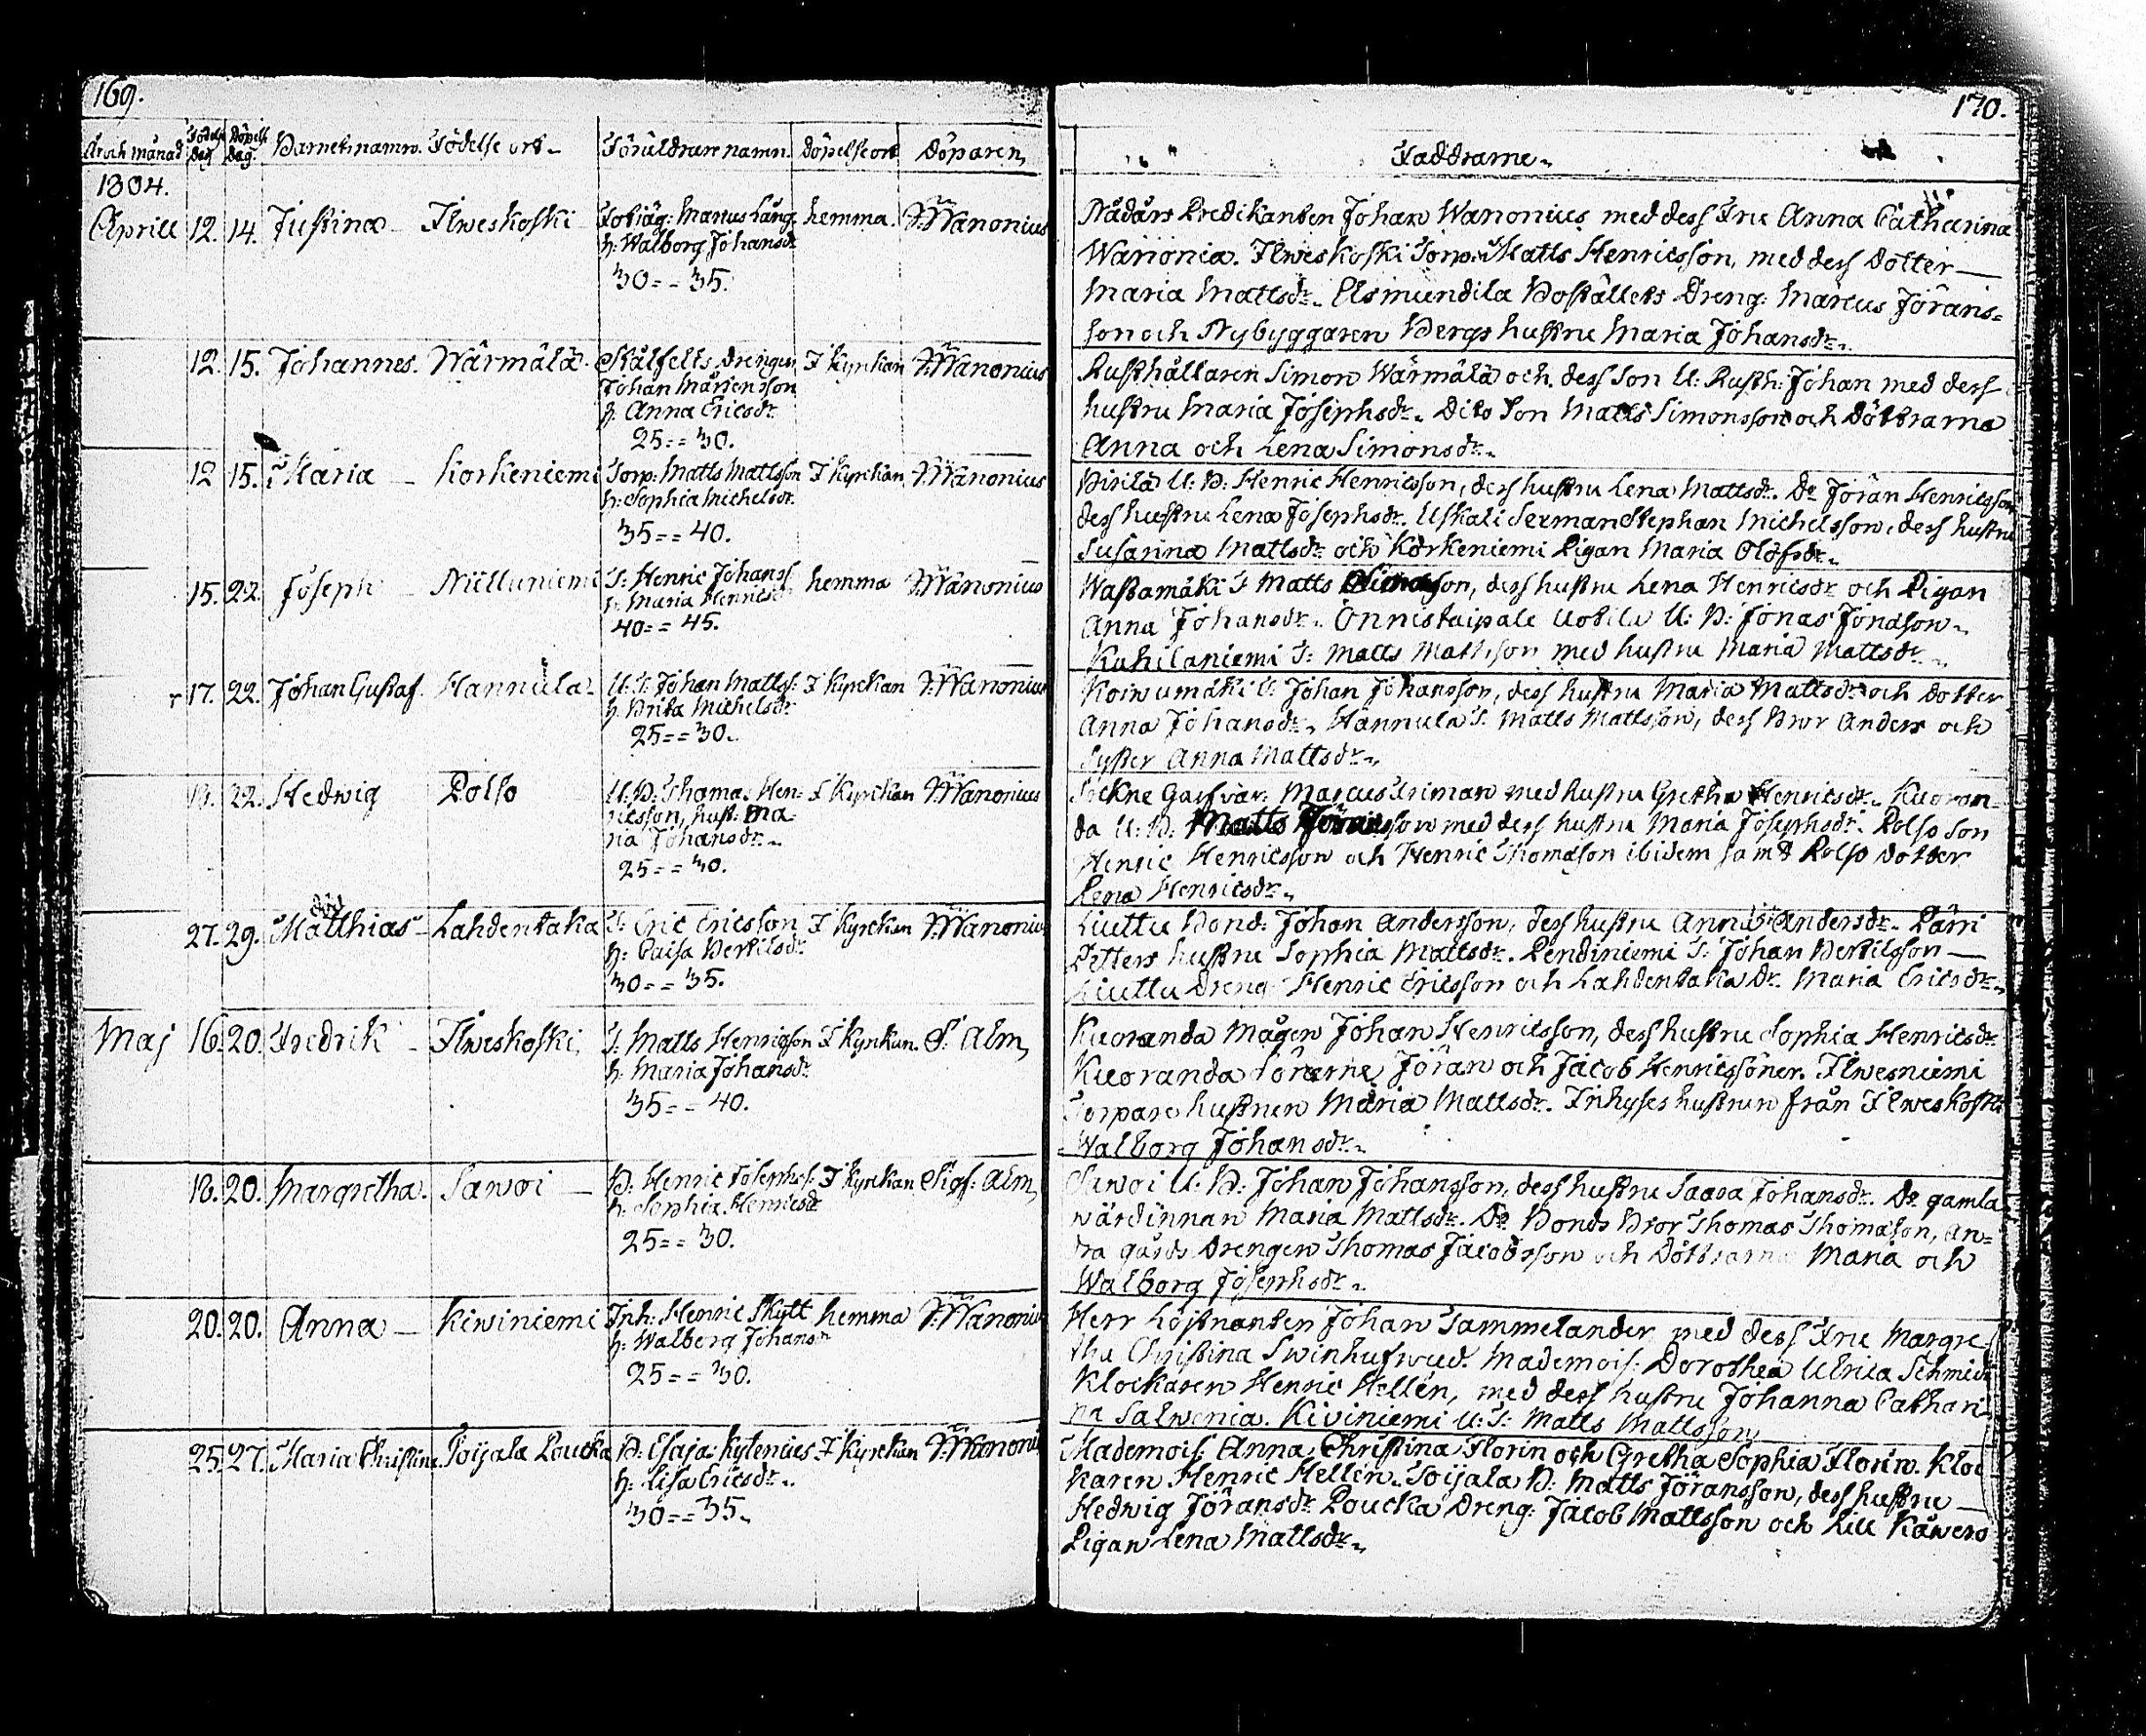 169.
År och månad Födelse Dag Döpelse Dag. Barnets namn. Födelse ort. Föräldrars namn. Döpelse ort Döparen
1804.
Aprill 12. 14. Justina Ilweskoski Marcus Lång hemma. J: Wanonius
h: Walborg Johansdr
30 = = 35.
12. 15. Johannes. Wärmälä. Skälfelts Drengen I kyrckan J: Wanonius
Johan Mårtensson
h: Anna Ericsdr
25 = = 30.
12 15. Maria Korkeniemi Torp: Matts Mattsson I kyrckan J: Wanonius
h: Sophia Michelsdr
35 = = 40.
15. 22. Joseph T: Henric Johanss. hemma J: Wanonius
h: Maria Henricsdr
40 = = 45.
17. 22. Johan Gustaf. Hannula U: T: Johan Mattss: I kyrckan J: Wanonius
h: Brita Michelsdr
25 = = 30.
22. Hedwig Polso U: B: Thomas Hen= I kyrckan J: Wanonius
ricsson, hust: Ma=
ria Johansdr
25 = = 30.
27. 29. Matthias Lahdentaka T: Eric Ericsson I kyrckan J: Wanonius
h: Caisa Bertilsdr
30 = = 35.
Maj 16. 20. Fredrik Ilweskoski T: Matts Henricsson I kyrckan. S: Alm
h: Maria Johansdr
35 = = 40.
18. 20. Margretha. Sawoi B: Henric Josephs: I kyrckan Sigf: Alm
h: Sophia Henricsdr
25 = = 30.
20. 20. Anna Kiwiniemi Inh: Henric Skytt hemma J: Wanonius
h: Walborg Johansdr
25 = = 30.
25. 27. Maria Christina Toijala Poucka B: Esaja: Kylenius I kyrckan J: Wanonius
h: Lisa Ericsdr
30 = = 35.
170.
Faddrarne
Nådårs Predikanten Johan Wanonius med dess Fru Anna Catharina
Wanonia. Ilweskoski Torp: Matts Henricsson, med dess Dotter
Maria Mattsdr. Asmundila Boställets Dreng: Marcus Jörans=
son och Nybyggaren Bergs hustru Maria Johansdr
Rusthållaren Simon Wärmälä och dess Son U: Rusth: Johan med dess
hustru Maria Josephsdr. Dito Son Matts Simonsson och Döttrarna
Anna och Lena Simonsdr
U: B: Henric Henricsson, dess hustru Lena Mattsdr. Do Jöran Henricsson
dess hustru Lena Josephsdr. Uskali Serman Stephan Michelsson, dess hustru
Susanna Mattsdr och Korkeniemi Pigan Maria Olofsdr
Wastamäki T Matts dess hustru Lena Henricsdr och Pigan
Anna Johansdr. Onnistaipale Uotila U: B: Jonas Jonasson
Kuhilaniemi T: Matts Mattsson med hustru Maria Mattsdr
Koiwumäki T: Johan Johansson, dess hustru Maria Mattsdr och Dotter
Anna Johansdr. Hannula T. Matts Mattsson, dess Bror Anders och
Syster Anna Mattsdr
Sockne Marcus med hustru Gretha Henricsdr. Kuoran=
da U: B: Matts Jöransson med dess hustru Maria Josephsdr. Polso Son
Henric Henricsson och Henric Thomasson ibidem samt Polso Dotter
Lena Henricsdr
Liuttu Bond: Johan Andersson, dess hustru Anna Andersdr. Päri
Petters hustru Sophia Mattsdr. Pendiniemi T: Johan Bertilsson
Liuttu Dreng Henric Ericsson och Lahdentaka Dr. Maria Ericsdr
Kuoranda Mågen Johan Henricsson, dess hustru Sophia Henricsdr
Kuoranda Sönerne Jöran och Jacob Henricssöner. Ilwesniemi
Torpare hustrun Maria Mattsdr. Inhyses hustrun från Ilweskoski
Walborg Johansdr
Sawoi U: B: Johan Johansson, dess hustru Saara Johansdr. Do gamla
wärdinnan Maria Mattsdr. Do Bonds Bror Thomas Thomasson, An=
dra gårds Drengen Thomas Jacobsson och Döttrarna Maria och
Walborg Josephsdr
Herr Löjtnanten Johan Tammelander med dess Fru Margre=
tha Christina Swinhufwud. Mademois: Dorothea Ulrica Schmidt
Klockaren Henric Hellén, med dess hustru Johanna Cathari=
na Salwenia. Kiviniemi U: T: Matts Mattsson
Mademois: Anna Christina Florin och Gretha Sophia Florin. Kloc
karen Henric Hellén. Toijala B: Matts Jöransson, dess hustru
Hedwig Jöransdr Poucka Dreng: Jacob Mattsson och Lill Käwero
Pigan Lena Mattsdr